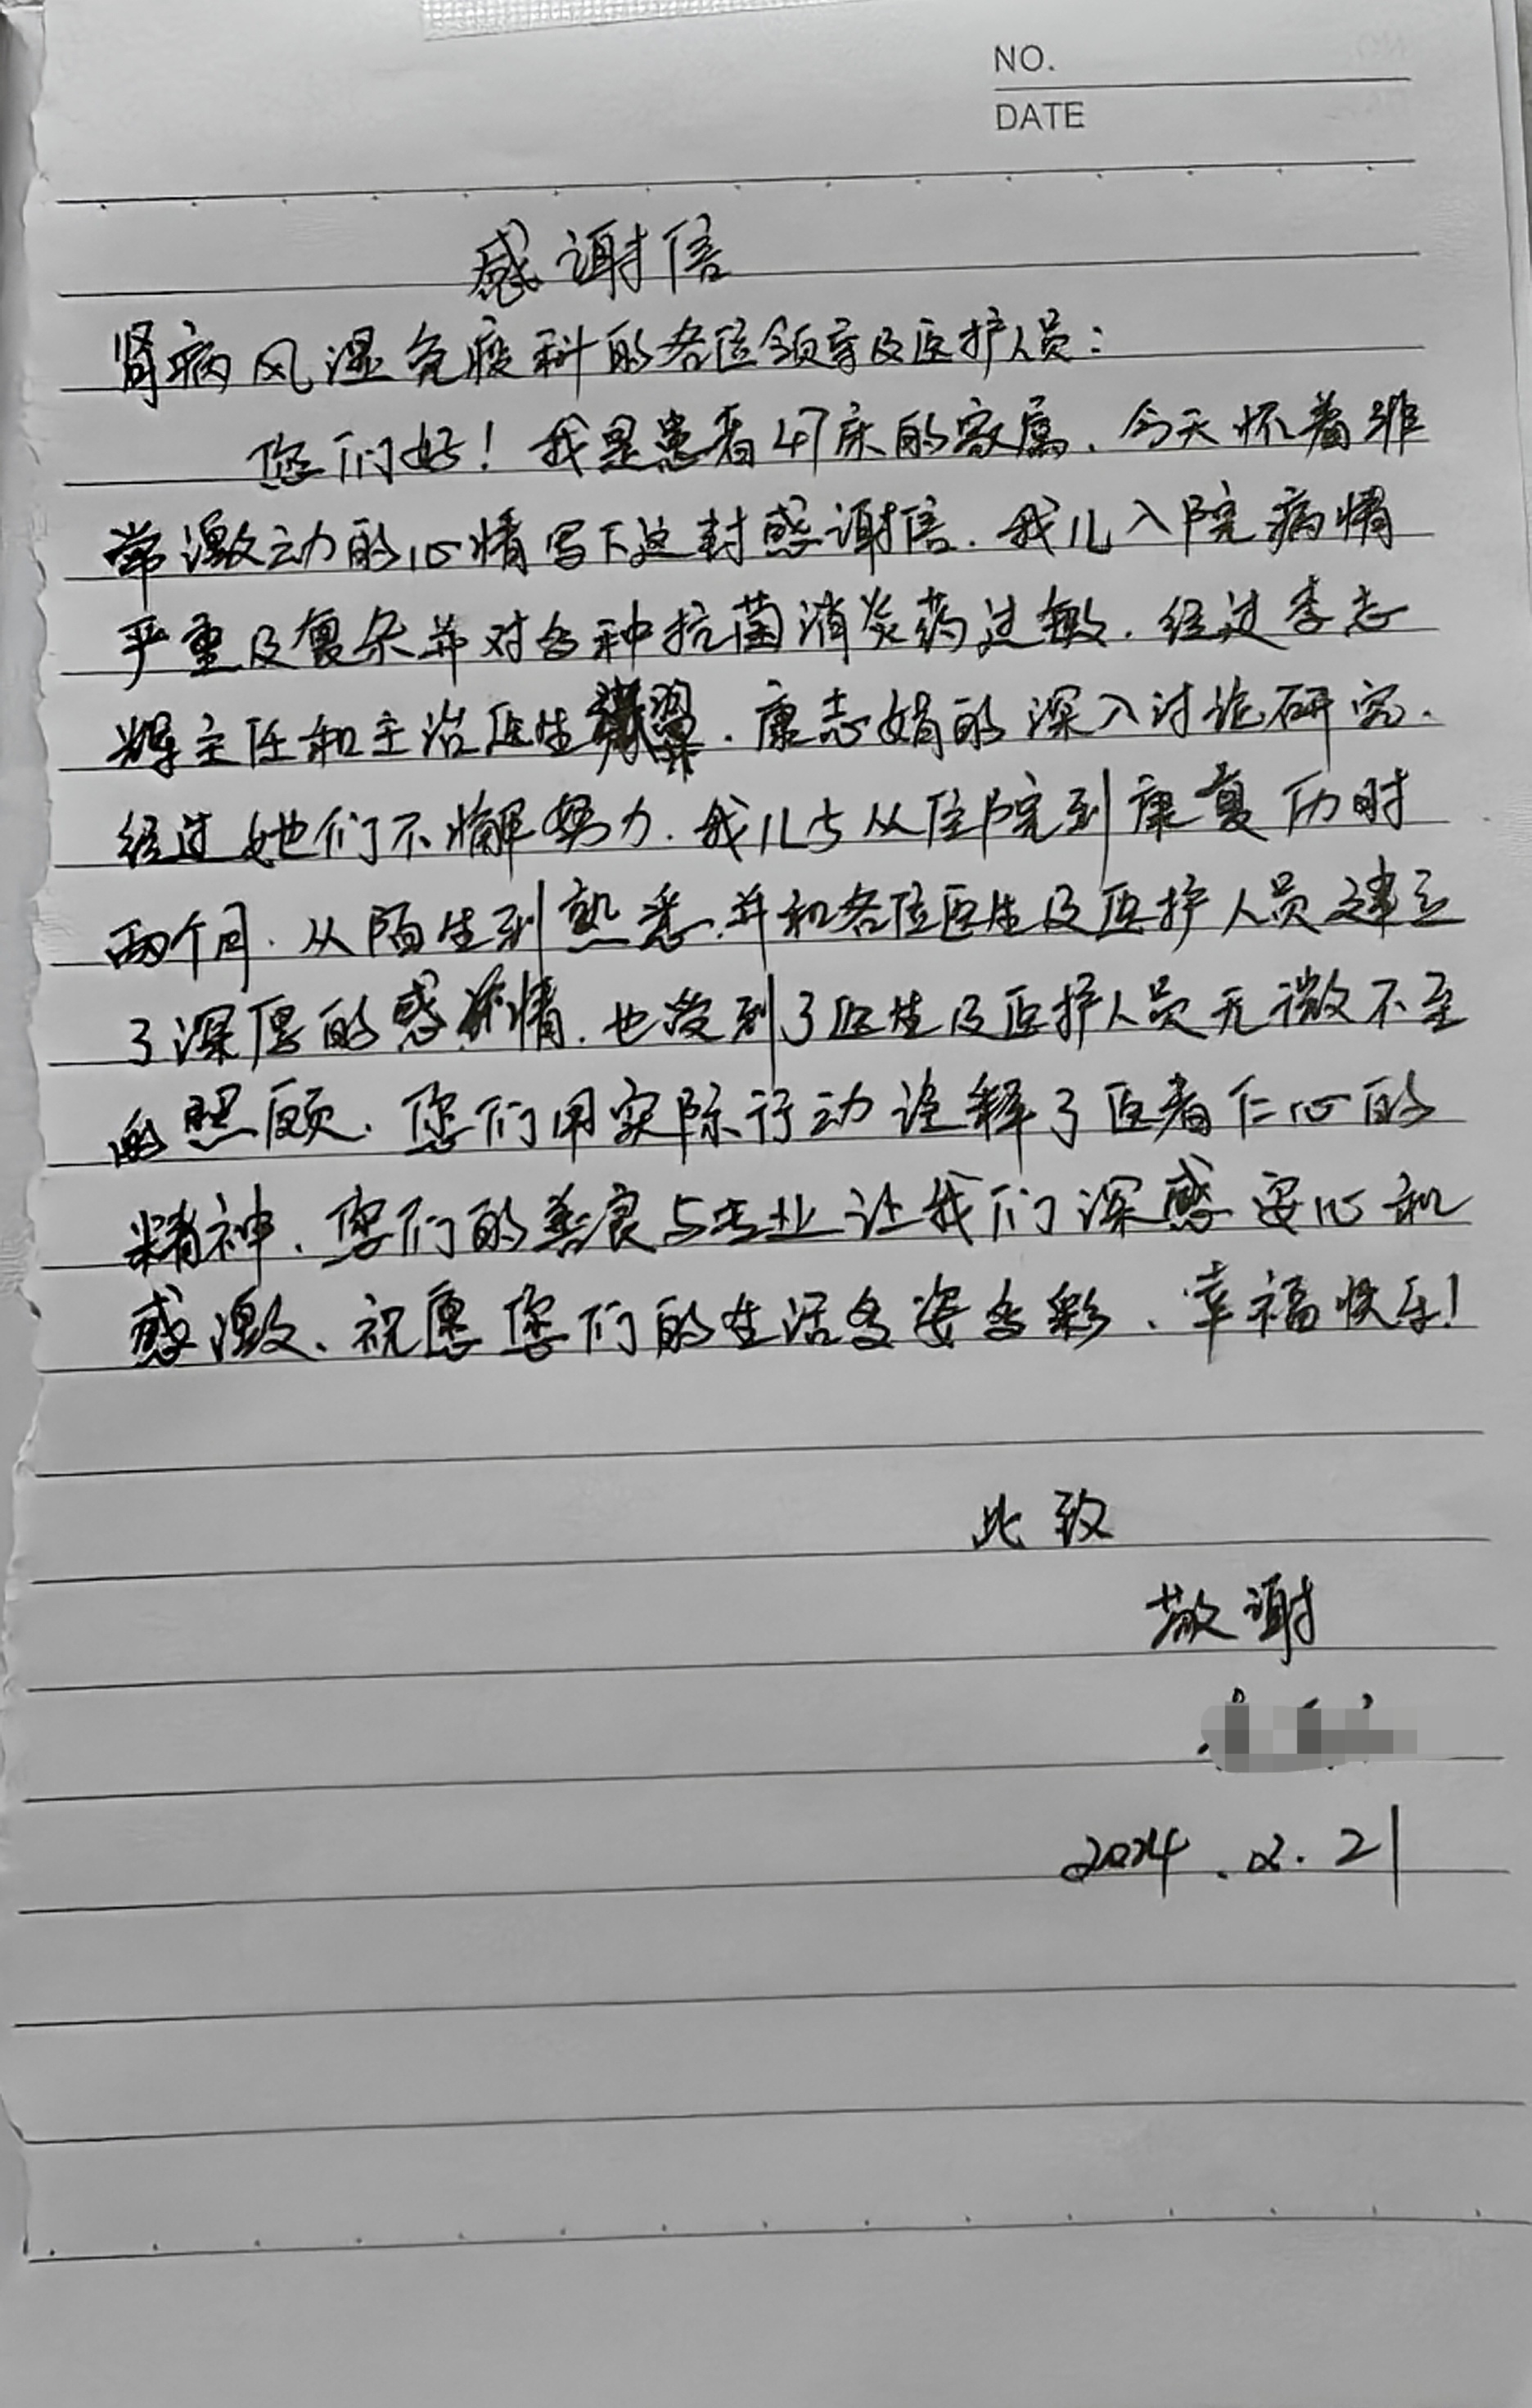 NO.
DATE
感谢信
肾病风湿免疫科的各位领导及医护人员:
您们好!我是患者47床的家属,今天怀着非
常激动的心情写下这封感谢信.我儿入院病情
严重及复杂并对各种抗菌消炎药过敏.经过李志
辉主任和主治医生 翼.康志娟的深入讨论研究.
经过她们不懈努力.我儿与从住院到康复历时
两个月.从陌生到熟悉.并和各位医生及医护人员建立
了深厚的感情.也受到了医生及医护人员无微不至
的照顾.您们用实际行动诠释了医者仁心的
精神、您们的善良与专业让我们深感安心和
感激、祝愿您们的生活多姿多彩、幸福快乐!
此致
敬谢
2024.02.21